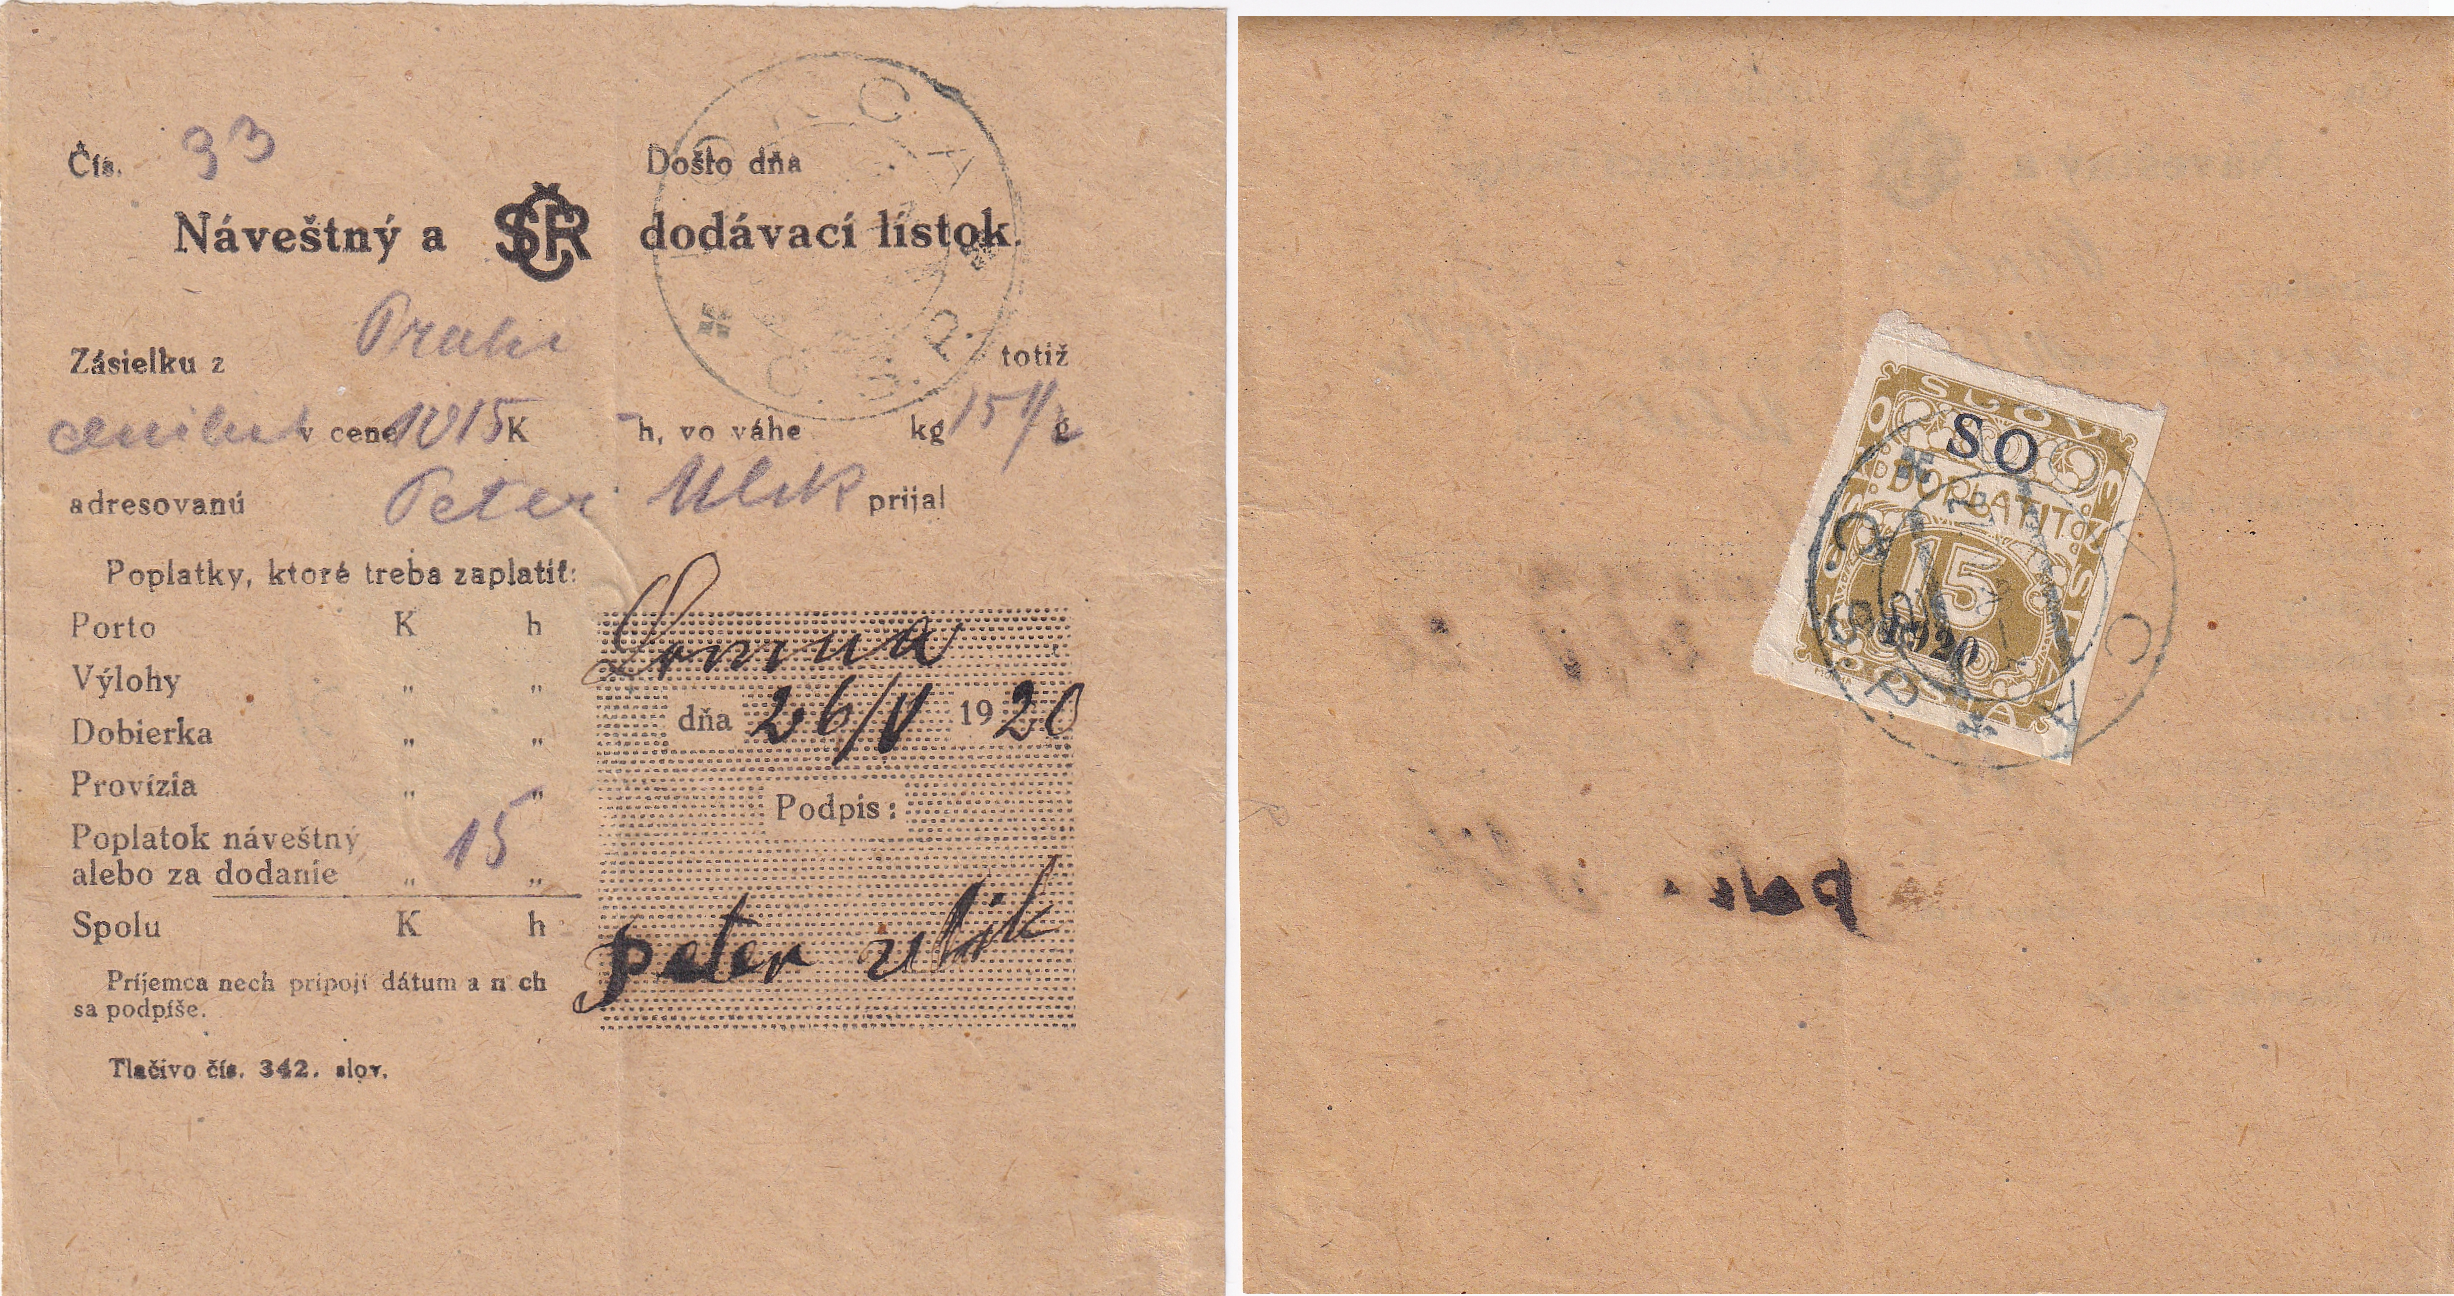 Čís. 33 Došlo dňa
Náveštný a SČR dodávací lístok.
Zásielku z totiž
v cene 1015 K – h, vo váhe kg 15 1/2 g
adresovanú Peter Ulik prijal
Poplatky, ktoré treba zaplatiť:
Porto K h
Výlohy „ „
Dobierka „ „
Provízia „ „
Poplatok náveštný
alebo za dodanie „ 15 „
Spolu K h
Príjemca nech pripojí dátum a n ch
sa podpíše.
Tlačivo čís. 342. slov.
Lomna
dňa 26/V 1920
Podpis:
peter ulik
ORCA
Č. S. P.
SO
DOPLATIT
15
1920
Č. S. P.